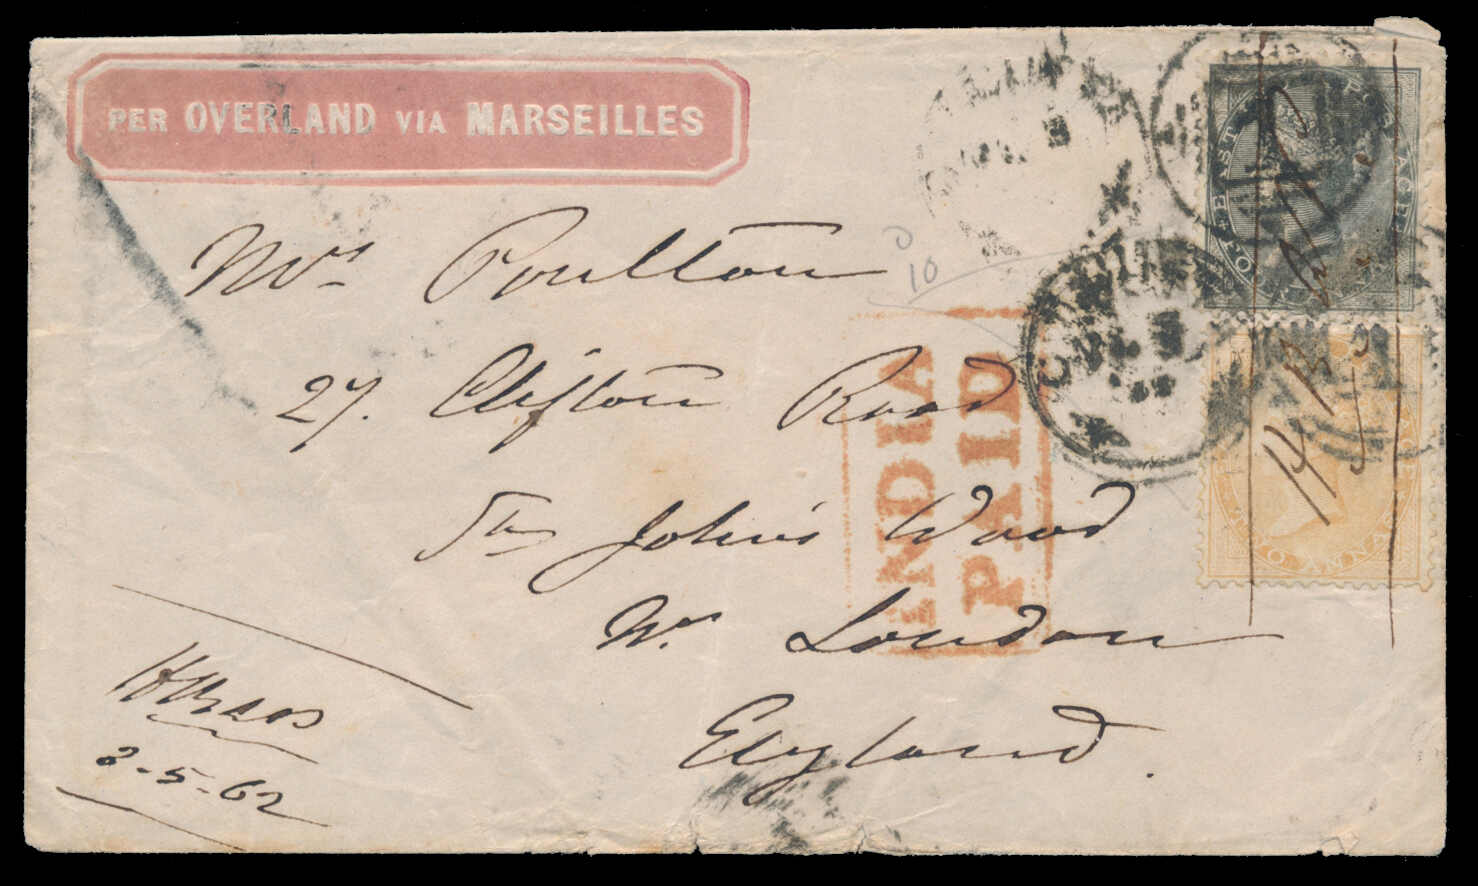 PER OVERLAND VIA MARSEILLES
Mrs Poulton
27. Clifton Road
St John's Wood
London
England.
INDIA
PAID
EAST
POSTAGE
TWO ANNAS
H B
2-5-62
10